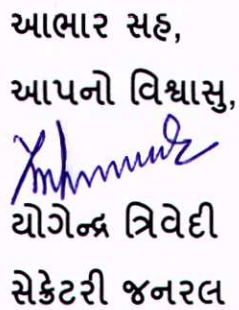 આભાર સહ,
આપનો વિશ્વાસુ,
યોગેન્દ્ર ત્રિવેદી
સેક્રેટરી જનરલ